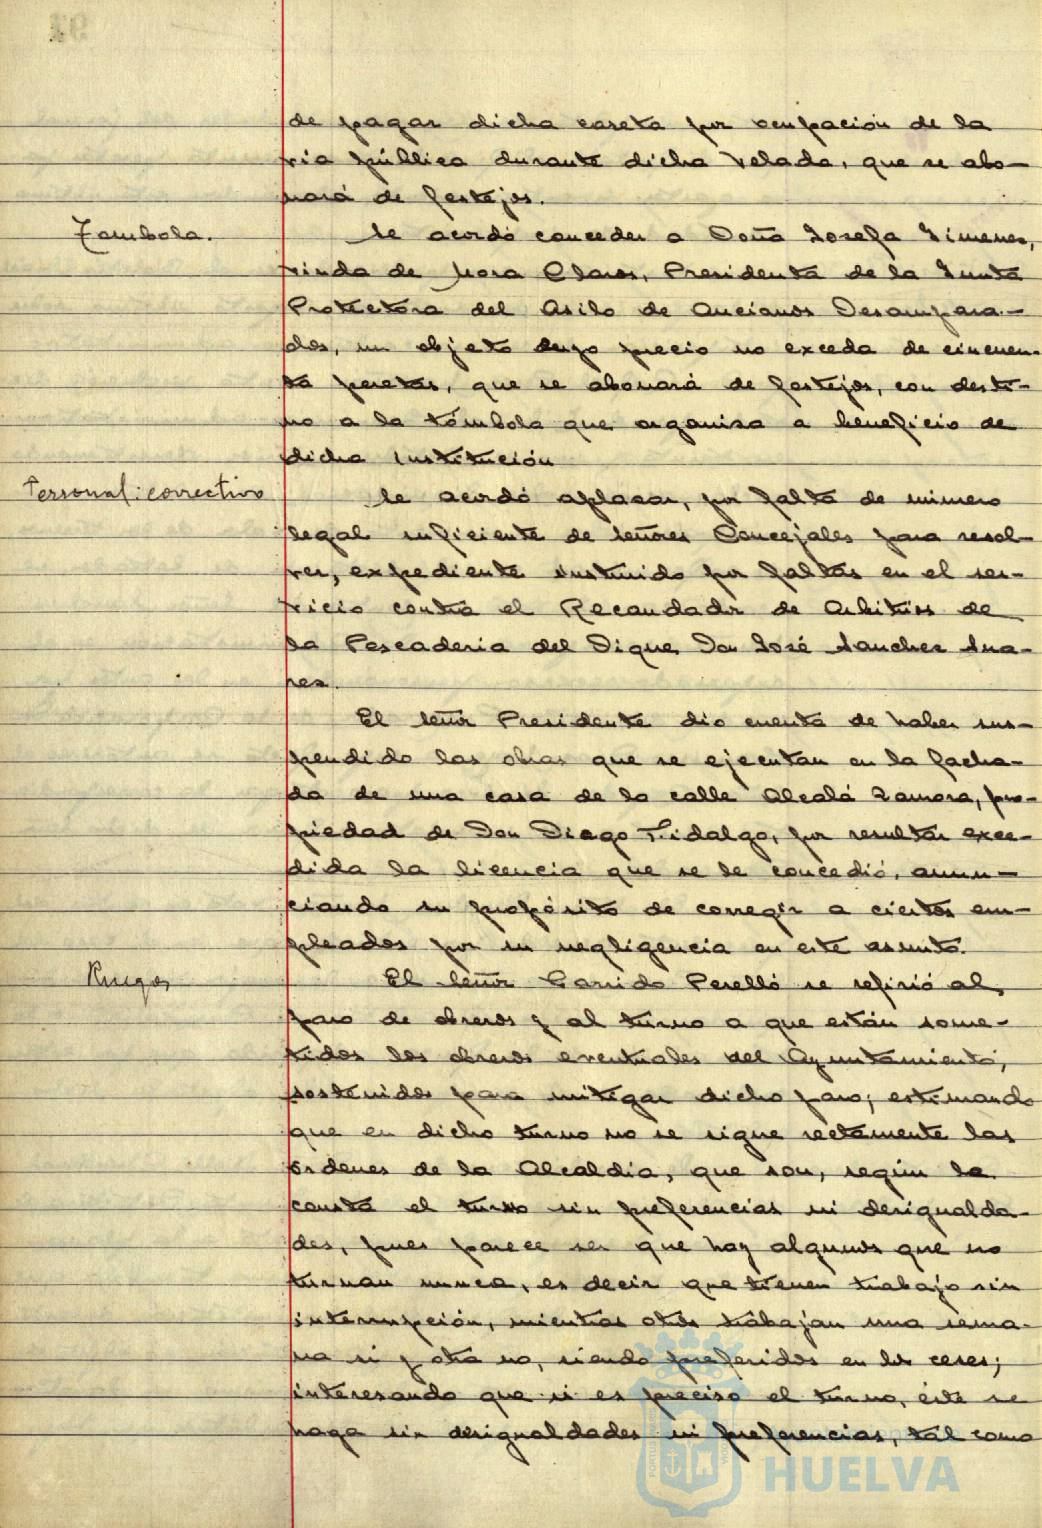 de pagar dicha caseta por ocupación de la
vía pública durante dicha Velada, que se abo-
nará de festejos.
Tombola.
Se acordó conceder a Doña Josefa Jimenez,
viuda de Mora Claros, Presidenta de la Junta
Protectora del Asilo de Ancianos Desampara-
dos, un objeto cuyo precio no exceda de cincuen-
ta pesetas, que se abonará de festejos, con desti-
no a la tómbola que organiza a beneficio de
dicha Institución
Personal: correctivo
Se acordó aplazar, por falta de número
legal suficiente de señores Concejales para resol-
ver, expediente instruido por faltas en el ser-
vicio contra el Recaudador de Arbitrios de
la Pescaderia del Dique, Don José Sanchez Sua-
rez.
El señor Presidente dio cuenta de haber sus-
pendido las obras que se ejecutan en la facha-
da de una casa de la calle Alcalá Zamora, pro-
piedad de Don Diego Fidalgo, por resultar exce-
dida la licencia que se le concedió, anun-
ciando su propósito de corregir a ciertos em-
pleados por su negligencia en este asunto.
Ruegos
El señor Garrido Perelló se refirió al
paro de obreros y al turno a que están some-
tidos los obreros eventuales del Ayuntamiento,
sostenidos para mitigar dicho paro; estimando
que en dicho turno no se sigue rectamente las
ordenes de la Alcaldía, que son, según le
consta el turno sin preferencias ni desigualda-
des, pues parece ser que hay algunos que no
turnan nunca, es decir que tienen trabajo sin
interrupción, mientras otros trabajan una sema-
na si y otra no, siendo preferidos en los ceses;
interesando que si es preciso el turno, éste se
haga sin desigualdades ni preferencias, tal como
HUELVA